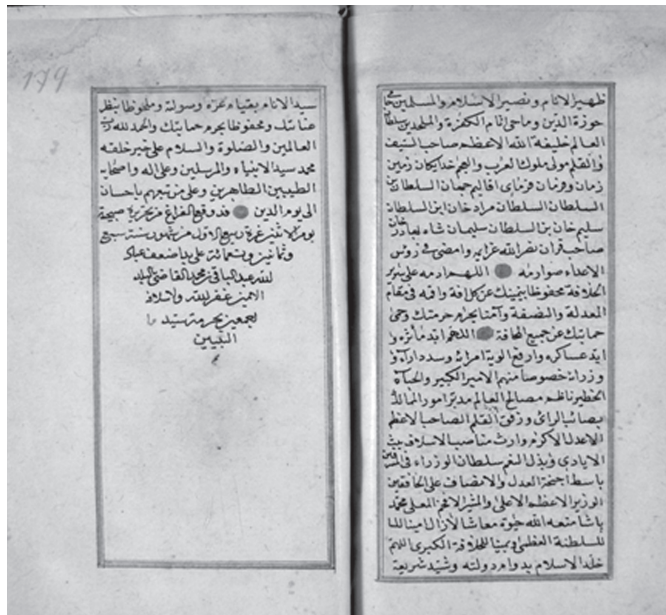 ظهير الانام ونصير الاسلام والمسلمين حامي
حوزة الدين وماحي اثام الكفرة والملحدين سلطان
العالم خليفة الله الاعظم صاحب السيف
والقلم مولى ملوك العرب والعجم خدايكان زمين
زمان وفرمان فرماى اقاليم جهان السلطان بن
السلطان السلطان مراد خان ابن السلطان
سليم خان بن السلطان سليمان شاه بهادر خان
صاحب قران نصر الله عزايمه وامضى في رؤس
الاعداء صوارمه اللهم ادمه على سرير
الخلافة محفوظا بيمينك عن كل افة وافه في مقام
المعدلة والنصفة وآمنا بحرم حرمتك وحمى
حمايتك عن جميع المخافة اللهم ابد مأثره و
ايد عساكره وارفع الوية امرائه وسدد اراء
وزرائه خصوصا منهم الامير الكبير والجناب
الخطير ناظم مصالح العالم مدبر امور الممالك
بصائب الراى ورفق القلم الصاحب الاعظم
الاعدل الاكرم وارث مناصب الاسلاف ببث
الايادى وبذل النعم سلطان الوزراء في الشرقين
باسط اجنحة العدل والانصاف على الخافقين
الوزير الاعظم الاعلى والمشير الافخم المعلى محمد
باشا متعه الله حيوة معاشا لازال امينا
للسلطنة العظمى ويمينا للخلافة الكبرى اللهم
خلد الاسلام بدوام دولته وشيد شريعة
179
سيد الانام بقيام عزه وصولة وملحوظا بنظر
عنايتك ومحفوظا بحرم حمايتك والحمد لله رب
العالمين والصلوة والسلام على خير خلقه
محمد سيد الانبياء والمرسلين وعلى اله واصحابه
الطيبين الطاهرين وعلى من تبعهم باحسان
الى يوم الدين قد وقع الفراغ من تحريره صبيحة
يوم الاثنين غرة ربيع الاول من شهور سنة سبع
وثمانين وتسعمائة على يد اضعف عباد
الله عبد الباقى بن محمد القاضى بالبلد
الامين غفر الله له ولاسلافه
اجمعين بحرمة سيد
النبيين